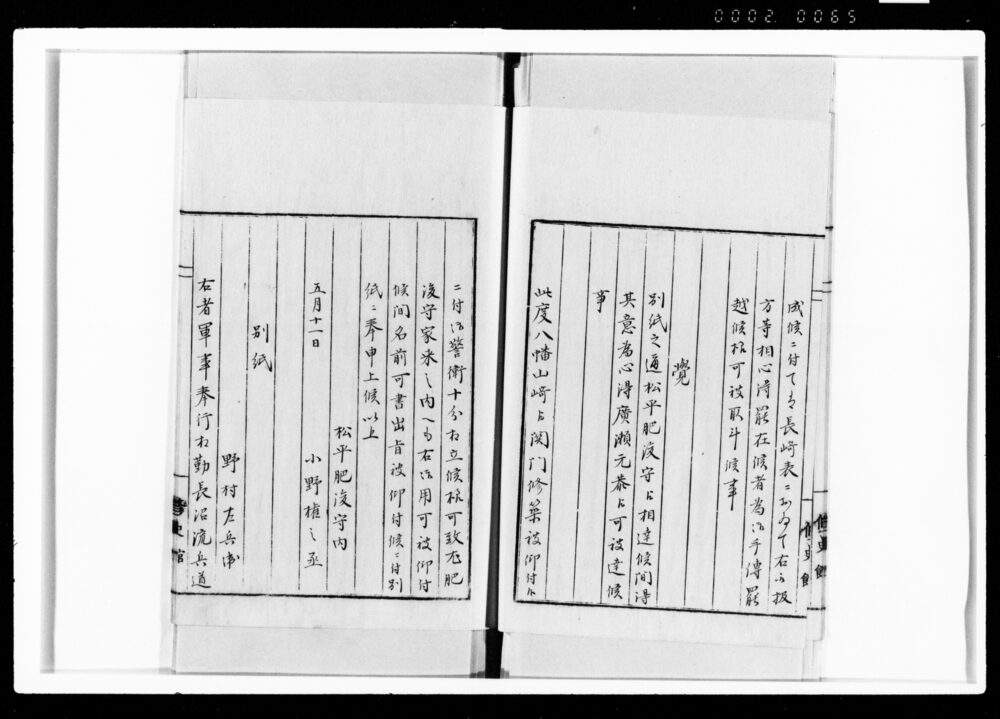 0002 0065
成候ニ付て者長崎表ニおゐて右之扱
方等相心得罷在候者為御手傳罷
越候様可被取斗候事
覺
別紙之通松平肥後守江相達候間得
其意為心得廣瀬元恭江可被達候
事
此度八幡山崎江関门修築被仰付候
ニ付御警衛十分相立候様可致尤肥
後守家来之内へも右御用可被仰付
候間名前可書出旨被仰付候ニ付別
紙ニ奉申上候以上
松平肥後守内
五月十一日 小野権之丞
別紙
野村左兵衛
右者軍事奉行相勤長沼流兵道